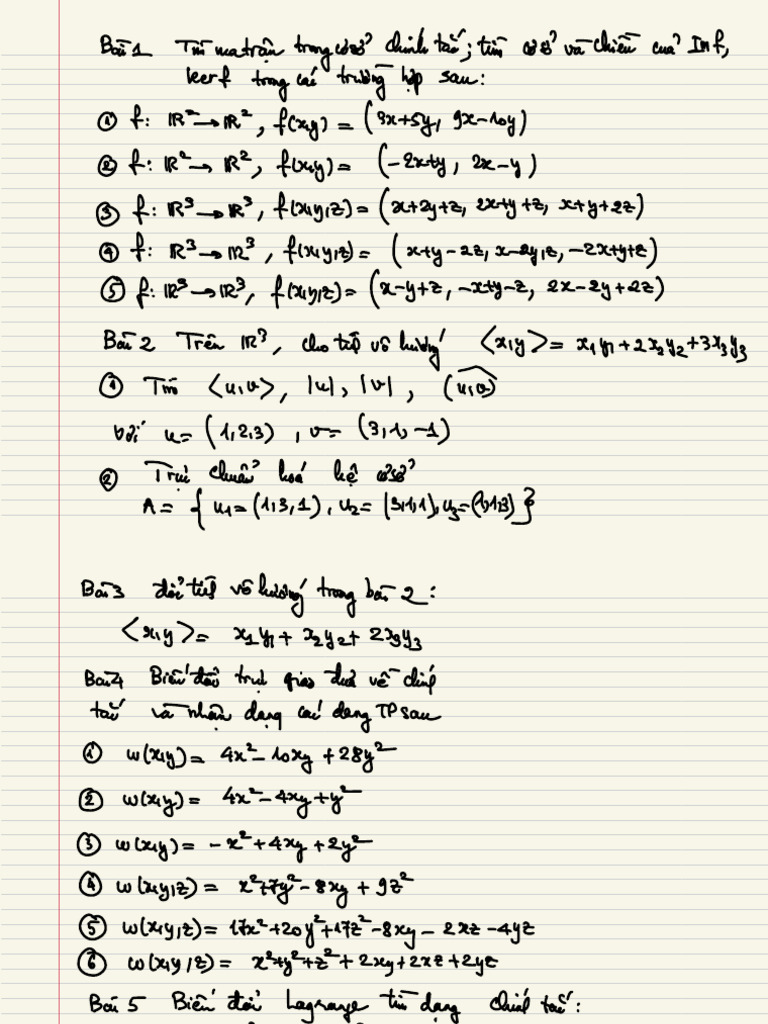 Bài 1 Tìm ma trận trong cơ sở chính tắc; tìm cơ sở và chiều của Im f,
ker f trong các trường hợp sau:
① f: ℝ² → ℝ², f(x,y) = (3x+5y, 9x-10y)
② f: ℝ² → ℝ², f(x,y) = (-2x+y, 2x-y)
③ f: ℝ³ → ℝ³, f(x,y,z) = (x+2y+z, 2x+y+z, x+y+2z)
④ f: ℝ³ → ℝ³, f(x,y,z) = (x+y-2z, x-2y,z, -2x+y+z)
⑤ f: ℝ³ → ℝ³, f(x,y,z) = (x-y+z, -x+y-z, 2x-2y+2z)
Bài 2 Trên ℝ³, cho tích vô hướng <x,y> = x₁y₁+2x₂y₂+3x₃y₃
① Tìm <u,v>, |u|, |v|, (u,v)
với u = (1,2,3), v = (3,1,-1)
② Trực chuẩn hoá hệ cơ sở
A = { u₁=(1,3,1), u₂=(3,1,1), u₃=(1,1,3) }
Bài 3 đổi tích vô hướng trong bài 2:
<x,y> = x₁y₁ + x₂y₂ + 2x₃y₃
Bài 4 Biến đổi trực giao đưa về chính
tắc và nhận dạng các dạng TP sau
① w(x,y) = 4x² - 10xy + 28y²
② w(x,y) = 4x² - 4xy + y²
③ w(x,y) = -x² + 4xy + 2y²
④ w(x,y,z) = x²+7y² - 8xy + 9z²
⑤ w(x,y,z) = 17x²+20y²+17z² - 8xy - 2xz - 4yz
⑥ w(x,y,z) = x²+y²+z² + 2xy+2xz+2yz
Bài 5 Biến đổi Lagrange tìm dạng chính tắc: